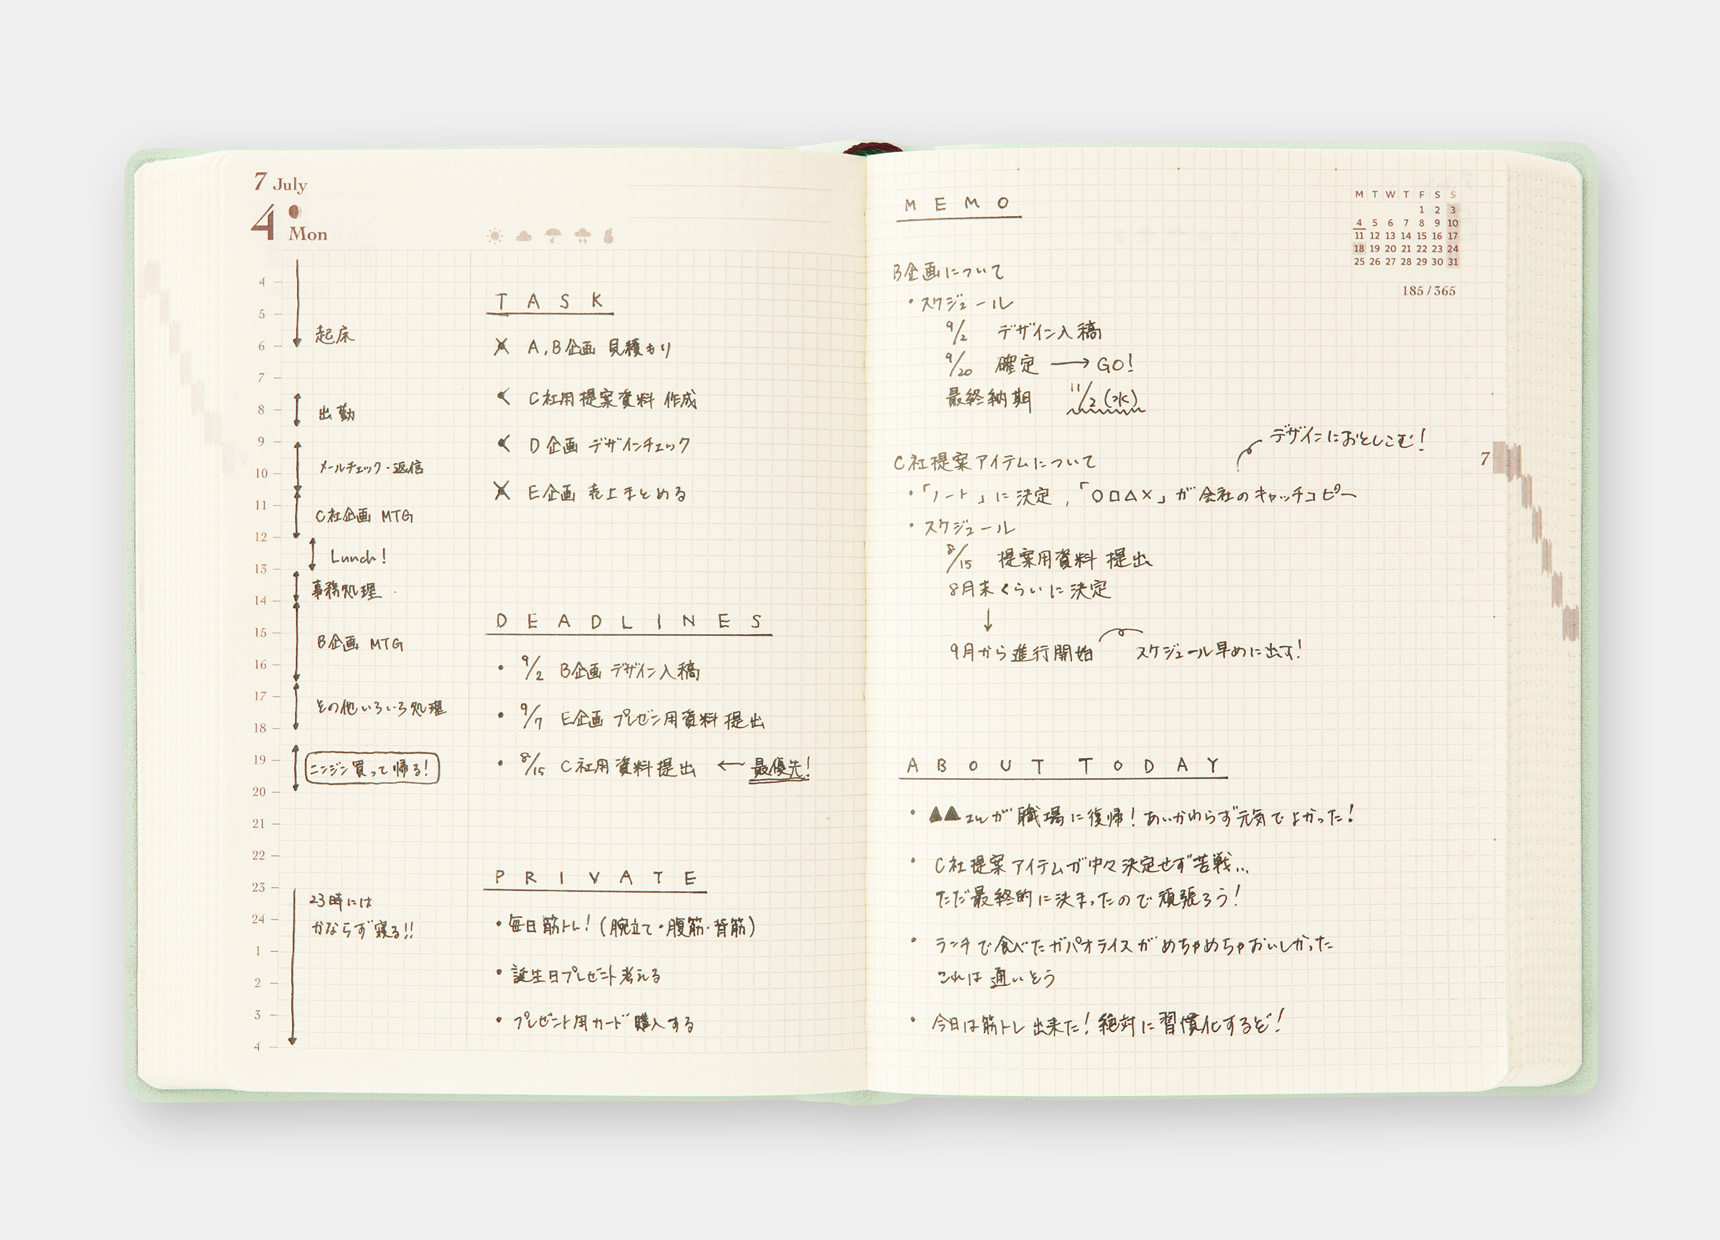 7 July
4 Mon
4
5
起床
6
7
8
出勤
9
メールチェック・返信
10
11
C社企画 MTG
12
Lunch!
13
事務処理
14
15
B企画 MTG
16
17
その他いろいろ処理
18
19
ニンジン買って帰る!
20
21
22
23
23時には
24
かならず寝る!!
1
2
3
4
TASK
A,B企画 見積もり
C社用提案資料 作成
D企画 デザインチェック
E企画 売上まとめる
DEADLINES
・9/2 B企画 デザイン入稿
・9/7 E企画 プレゼン用資料 提出
・8/15 C社用資料提出 ← 最優先!
PRIVATE
・毎日筋トレ!(腕立て・腹筋・背筋)
・誕生日プレゼント考える
・プレゼント用カード購入する
MEMO
B企画について
・スケジュール
9/2 デザイン入稿
9/20 確定 → GO!
最終納期 11/2(水)
デザインにおとしこむ!
C社提案アイテムについて
・「ノート」に決定,「○□△×」が会社のキャッチコピー
・スケジュール
8/15 提案用資料 提出
8月末くらいに決定
↓
9月から進行開始 スケジュール早めに出す!
ABOUT TODAY
・▲▲さんが職場に復帰!あいかわらず元気でよかった!
・C社提案アイテムが中々決定せず苦戦...
ただ最終的に決まったので頑張ろう!
・ランチで食べたガパオライスがめちゃめちゃおいしかった
これは通いそう
・今日は筋トレ出来た!絶対に習慣化するぞ!
M T W T F S S
1 2 3
4 5 6 7 8 9 10
11 12 13 14 15 16 17
18 19 20 21 22 23 24
25 26 27 28 29 30 31
185/365
7